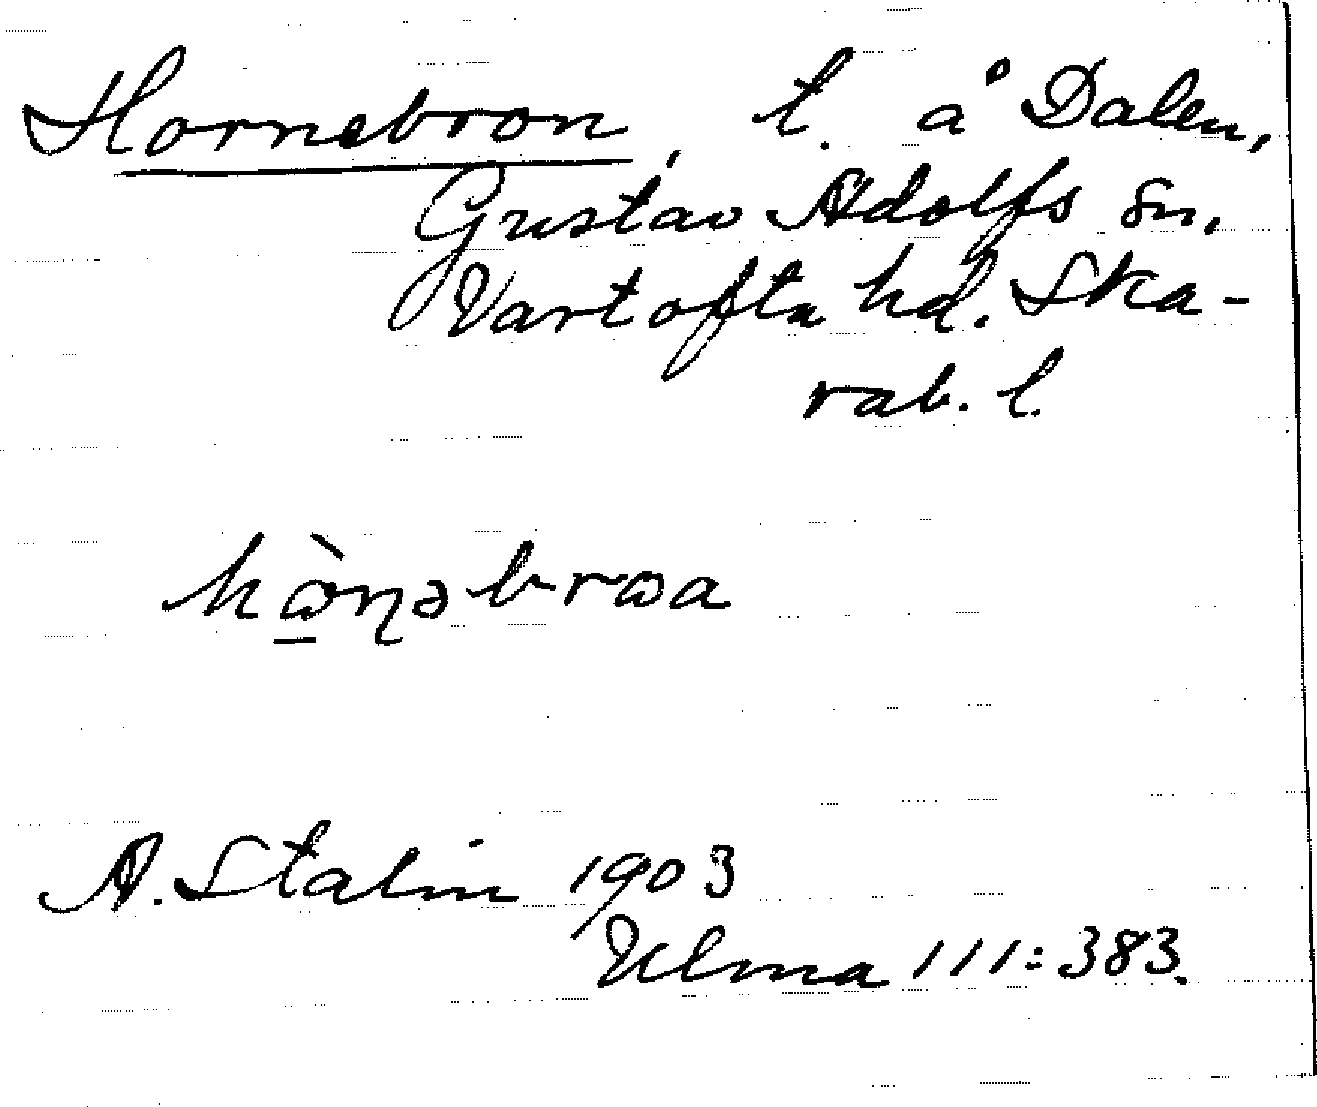 Hornebron, t. å Dalen,
Gustav Adolfs sn,
Vartofta hd. Ska-
rab. l.
hɷ̠̀ɳəbrɷa
A. Stalin 1903
Ulma 111:383.